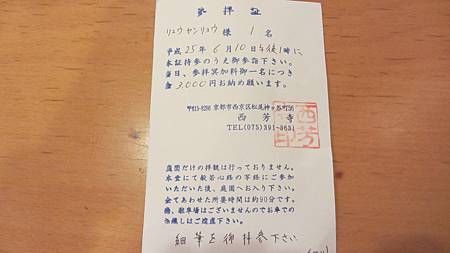 参拝証
リュウヤンリュウ 様 1 名
平成 25年 6月 10日 午後 1時 に
本証持参のうえ御参詣下さい。
当日、参拝冥加料御一名につき
金 3,000円お納め願います。
〒615-8286 京都市西京区松尾神ヶ谷町56
西芳寺
TEL(075)391-3631
庭園だけの拝観は行っておりません。
本堂にて般若心経の写経にご参加
いただいた後、庭園へお入り下さい。
全てあわせた所要時間は約90分です。
尚、駐車場はございませんのでお車での
お越しはご遠慮下さい。
細筆を御持参下さい